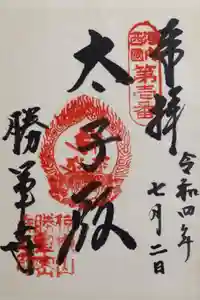 奉拝
第壱番
令和四年
七月二日
太子殿
勝軍寺